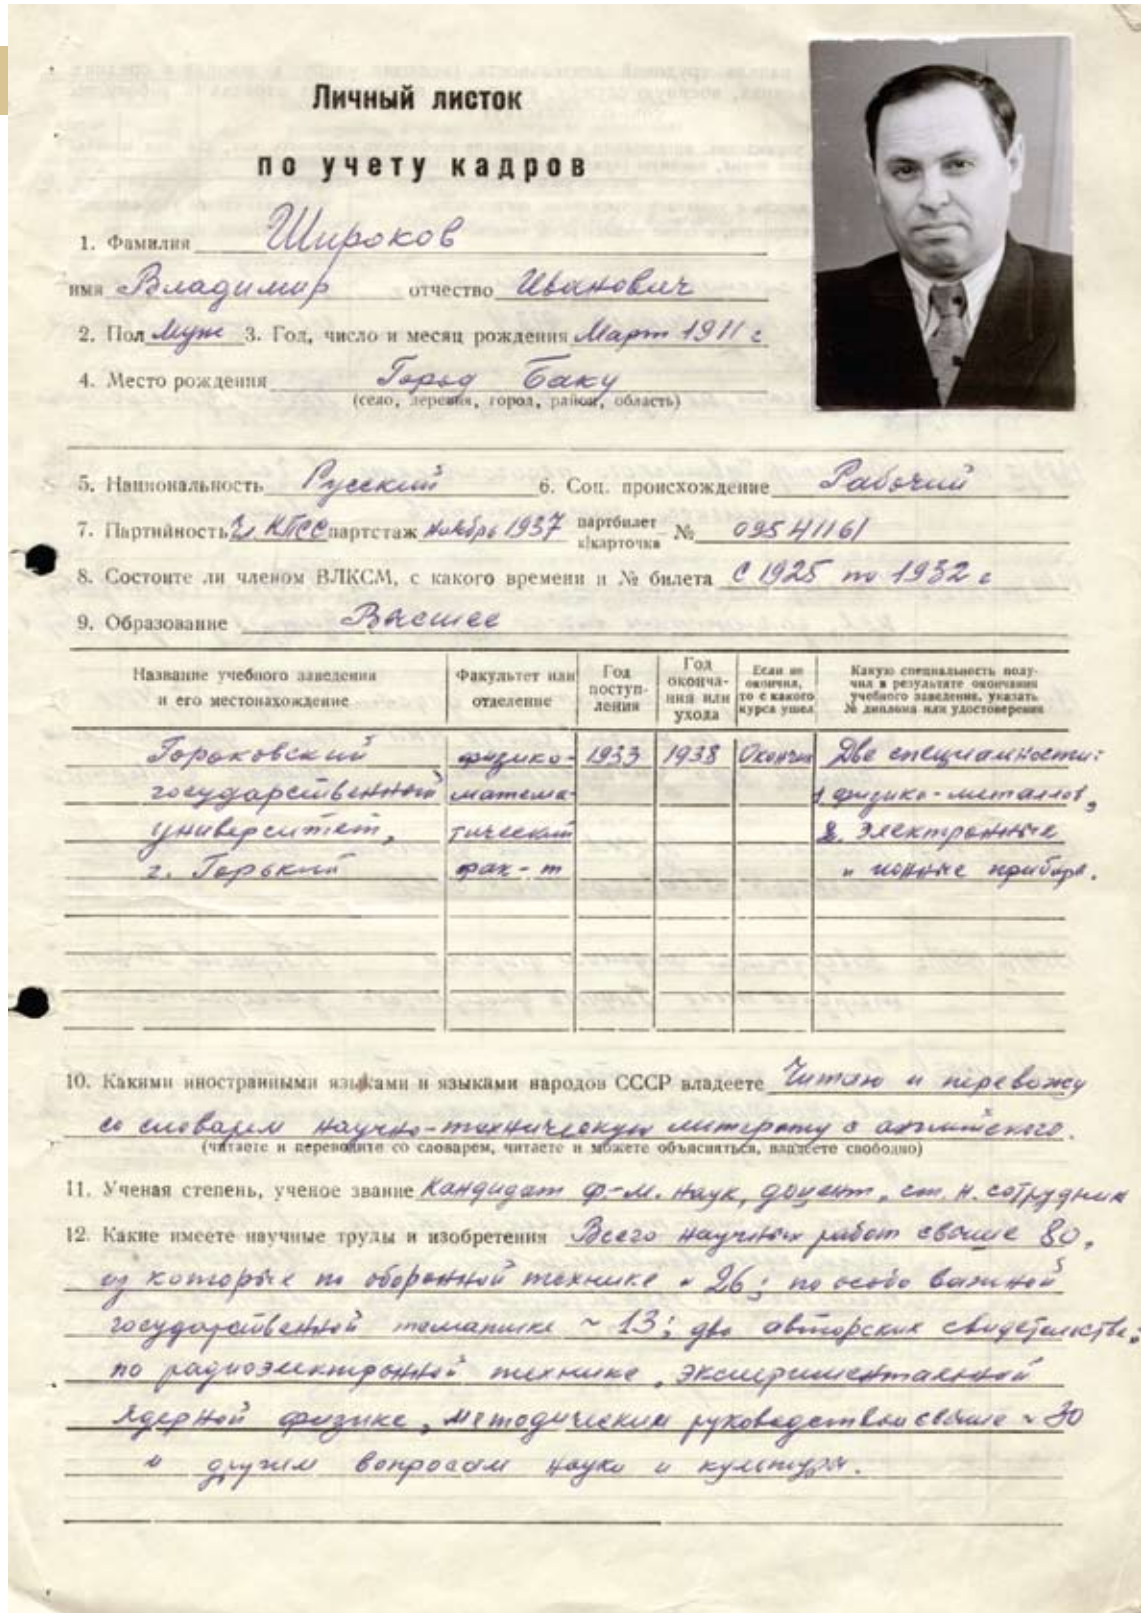 Личный листок
по учету кадров
1. Фамилия Широков
имя Владимир отчество Иванович
2. Пол Муж 3. Год, число и месяц рождения Март 1911 г
4. Место рождения Город Баку
(село, деревня, город, район, область)
5. Национальность Русский 6. Соц. происхождение Рабочий
7. Партийность Чл. КПСС партстаж ноябрь 1937 партбилет к/карточка № 09541161
8. Состоите ли членом ВЛКСМ, с какого времени и № билета С 1925 по 1932 г
9. Образование Высшее
Название учебного заведения и его местонахождение
Факультет или отделение
Год поступления
Год окончания или ухода
Если не окончил, то с какого курса ушел
Какую специальность получил в результате окончания учебного заведения, указать № диплома или удостоверения
Горьковский физико- 1933 1938 Окончил Две специальности:
государственный матема- 1 физико-металлов,
университет, тический 2. Электронные
г. Горький фак-т и ионные приборы.
10. Какими иностранными языками и языками народов СССР владеете Читаю и перевожу
со словарем научно-техническую литературу с английского.
(читаете и переводите со словарем, читаете и можете объясняться, владеете свободно)
11. Ученая степень, ученое звание Кандидат ф-м. наук, доцент, ст. н. сотрудник
12. Какие имеете научные труды и изобретения Всего научных работ свыше 80,
из которых по оборонной технике ~ 26; по особо важной
государственной тематике ~ 13; два авторских свидетельства;
по радиоэлектронной технике, экспериментальной
ядерной физике, методическим руководствам свыше ~ 30
и другим вопросам науки и культуры.